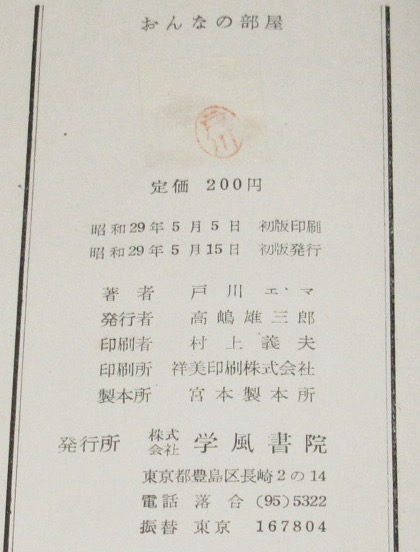 おんなの部屋
定価 200円
昭和29年5月5日 初版印刷
昭和29年5月15日 初版発行
著者 戸川エマ
発行者 高嶋雄三郎
印刷者 村上義夫
印刷所 祥美印刷株式会社
製本所 宮本製本所
発行所 株式会社 学風書院
東京都豊島区長崎2の14
電話 落合 (95) 5322
振替 東京 167804